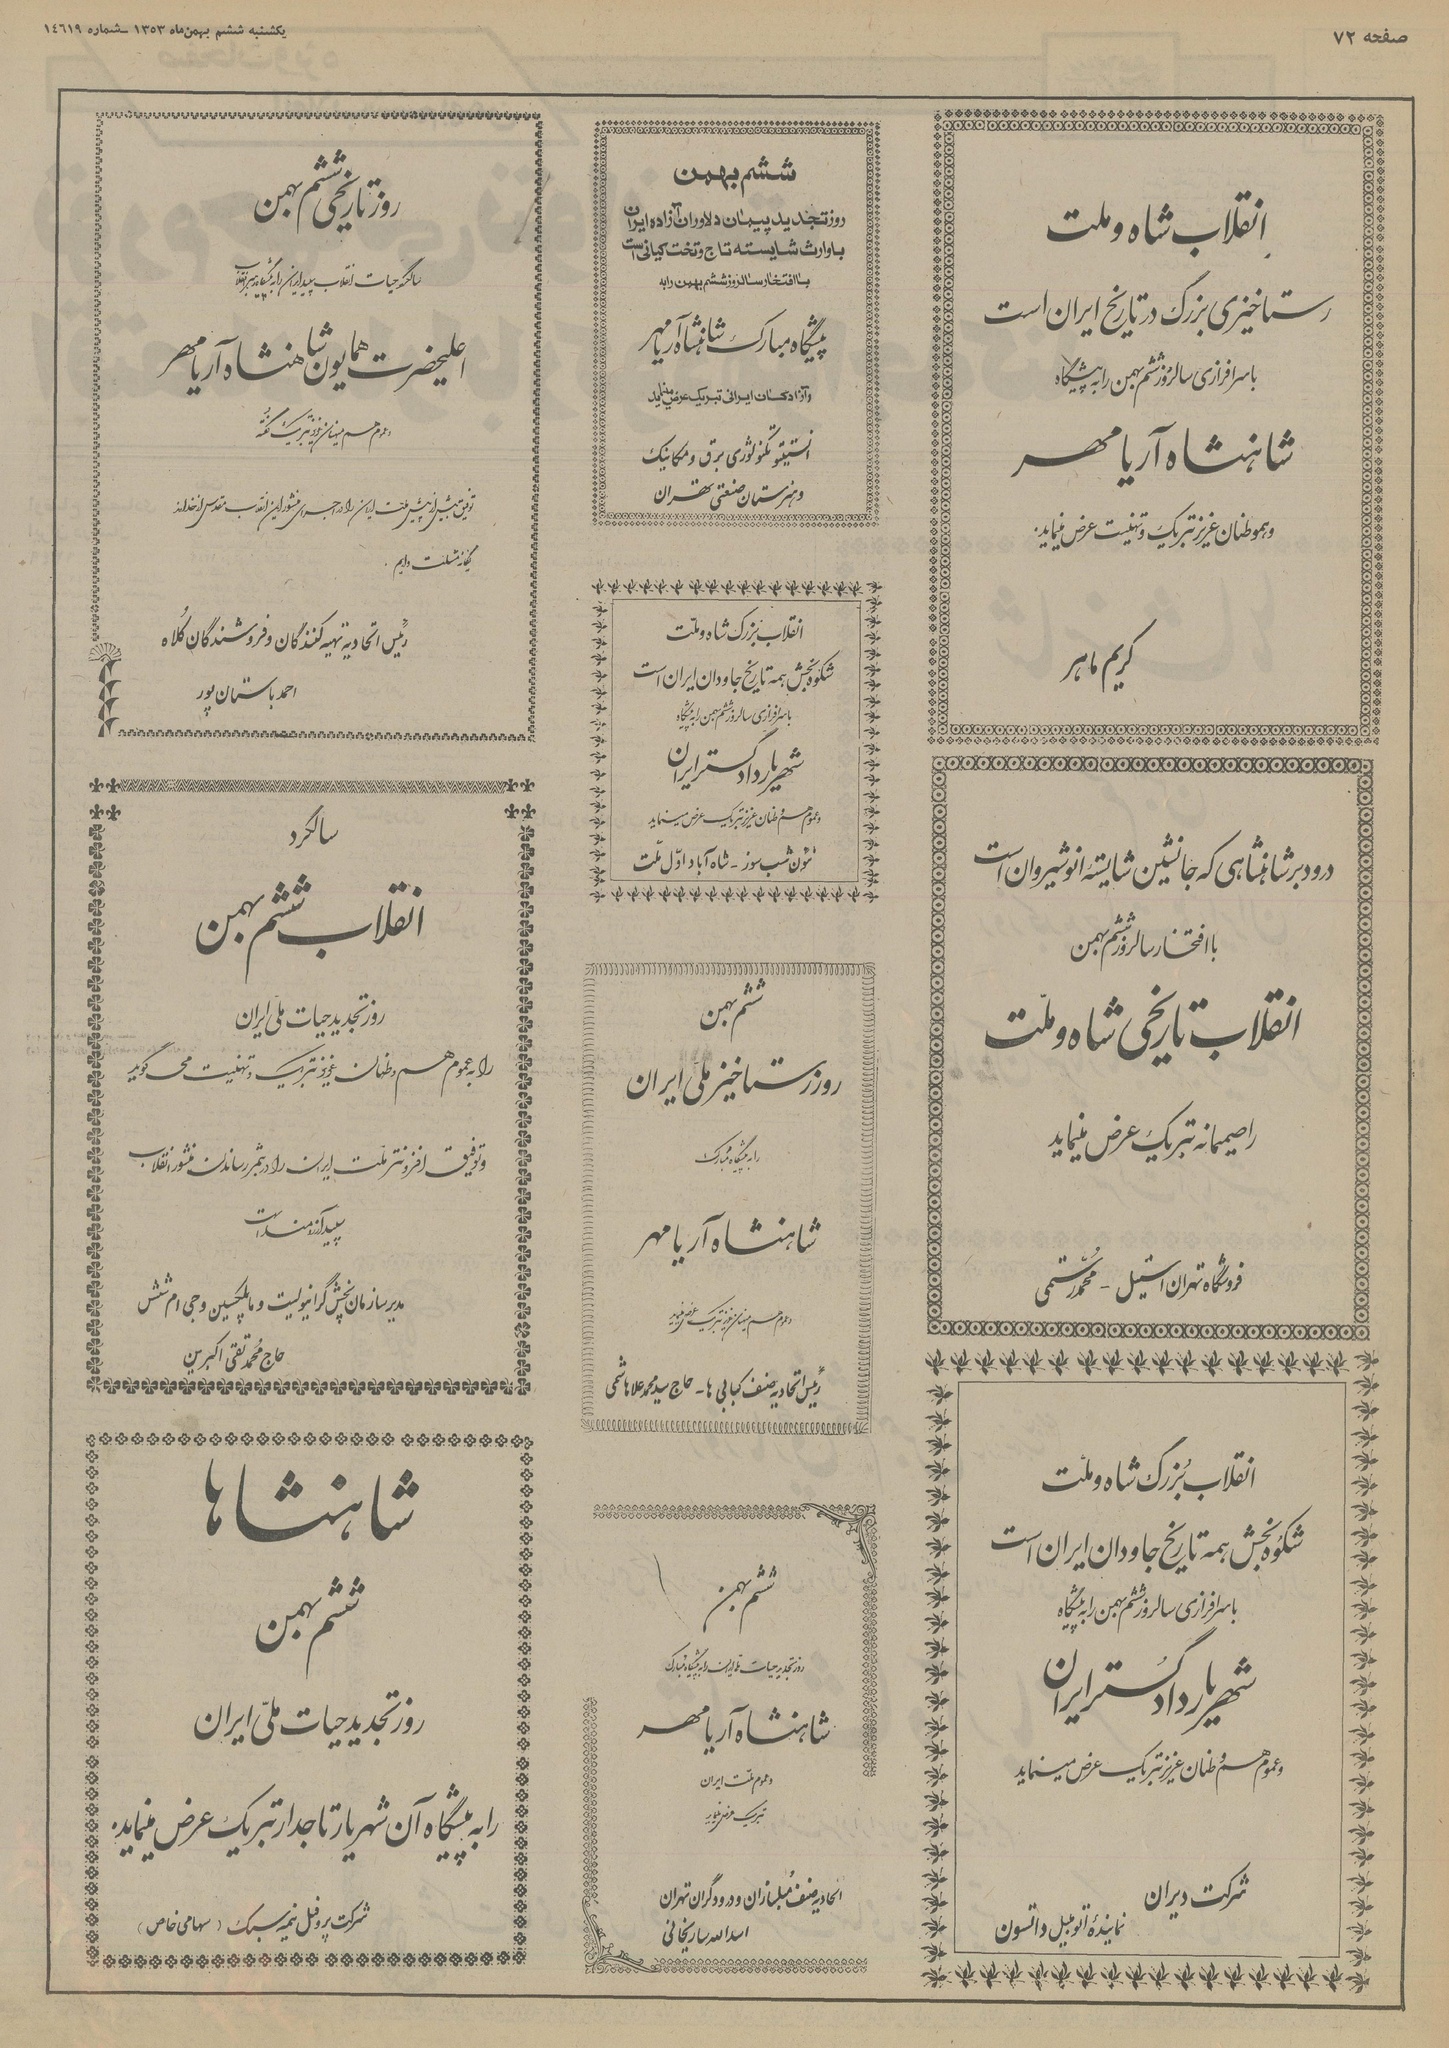 صفحه ۷۲
یکشنبه ششم بهمن‌ماه ۱۳۵۳ - شماره ۱۴۶۱۹
انقلاب شاه و ملت
رستاخیزی بزرگ در تاریخ ایران است
با سرافرازی سالروز ششم بهمن را به پیشگاه
شاهنشاه آریامهر
و هموطنان عزیز تبریک و تهنیت عرض مینماید.
کریم ماهر
درود بر شاهنشاهی که جانشین شایستهٔ انوشیروان است
با افتخار سالروز ششم بهمن
انقلاب تاریخی شاه و ملّت
را صمیمانه تبریک عرض مینماید
فروشگاه تهران استیل - محمد رستمی
انقلاب بزرگ شاه و ملّت
شکوه بخش همه تاریخ جاودان ایران است
با سرافرازی سالروز ششم بهمن را به پیشگاه
شهریار دادگستر ایران
و عموم هموطنان عزیز تبریک عرض مینماید
شرکت دیران
نمایندهٔ اتومبیل داتسون
ششم بهمن
روز تجدید پیمان دلاوران آزاده ایران
با وارث شایسته تاج و تخت کیانی است
با افتخار سالروز ششم بهمن را به
پیشگاه مبارک شاهنشاه آریامهر
و آزادگان ایرانی تبریک عرض مینماید
انستیتو تکنولوژی برق و مکانیک
و هنرستان صنعتی تهران
انقلاب بزرگ شاه و ملّت
شکوه بخش همه تاریخ جاودان ایران است
با سرافرازی سالروز ششم بهمن را به پیشگاه
شهریار دادگستر ایران
و عموم هموطنان عزیز تبریک عرض مینماید
شب سوز - شاه آباد اوّل ملّت
ششم بهمن
روز رستاخیز ملی ایران
را به پیشگاه مبارک
شاهنشاه آریامهر
و عموم هم میهنان عزیز تبریک عرض مینماید
رئیس اتحادیه صنف کبابی ها - حاج سید محمد علا هاشمی
ششم بهمن
روز تجدید حیات ملی ایران را به پیشگاه مبارک
شاهنشاه آریامهر
و عموم ملّت ایران
تبریک عرض مینماید
اتحادیه صنف مبلسازان و درودگران تهران
اسدالله ساریخانی
روز تاریخی ششم بهمن
سالگرد حیات انقلاب سپید ایران را به پیشگاه رهبر انقلاب
اعلیحضرت همایون شاهنشاه آریامهر
و عموم هم میهنان عزیز تبریک گفته
توفیق بیش از پیش ملت ایران را در اجرای منشور این انقلاب مقدس از خداوند
یگانه مسئلت داریم.
رئیس اتحادیه تهیه کنندگان و فروشندگان کلاه
احمد باستان پور
سالگرد
انقلاب ششم بهمن
روز تجدید حیات ملّی ایران
را به عموم هم وطنان عزیز تبریک و تهنیت می گوید
و توفیق افزونتر ملّت ایران را در بثمر رساندن منشور انقلاب
سپید آرزومند است
مدیر سازمان پخش گرانیولیت و مایلکسین و جی ام شش
حاج محمد تقی اکبرین
شاهنشاها
ششم بهمن
روز تجدید حیات ملّی ایران
را به پیشگاه آن شهریار تاجدار تبریک عرض مینماید.
شرکت پروفل نیمه سبک (سهامی خاص)